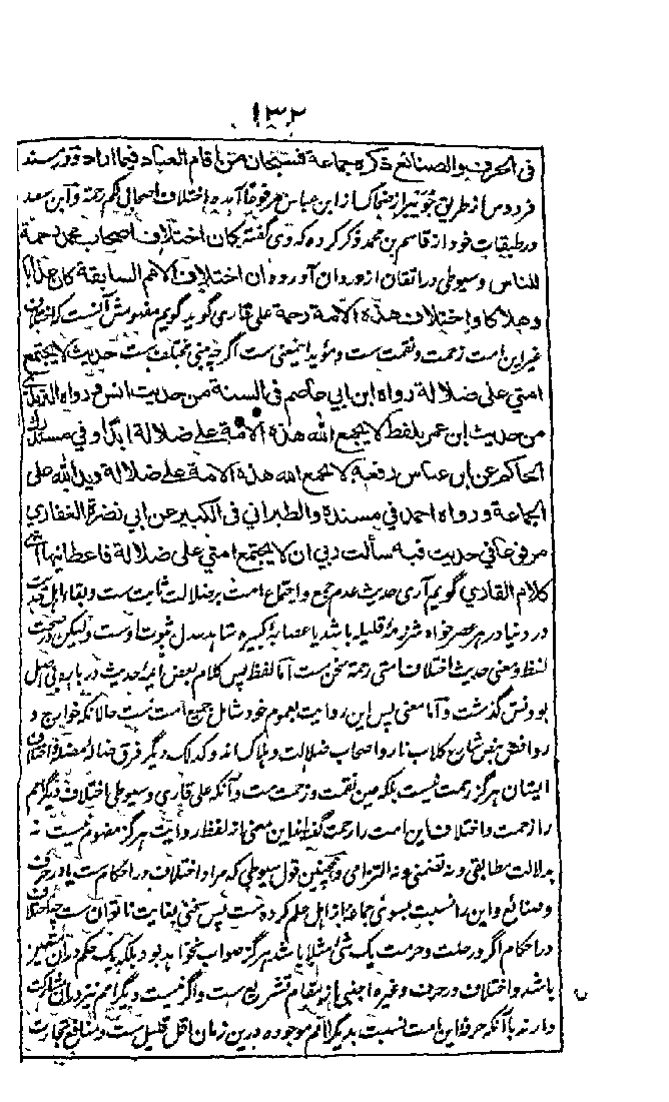 ١٣٢
فی الحرف والصنائع ذکره جماعة فسبحان من اقام العباد فیما اراد و در سند
فردوس از طریق جویبر از ضحاک از ابن عباس مرفوعاً آمده اختلاف اصحابی لکم رحمة و ابن سعد
در طبقات خود از قاسم بن محمد ذکر کرده که وی گفته کان اختلاف اصحاب محمد رحمة
للناس و سیوطی در اتقان از وردان آورده ان اختلاف الامم السابقة کان عذابا
وهلاکا واختلاف هذه الامة رحمة علی قاری گوید گویم مفهومش آنست که اختلاف
غیر این امت زحمت و نقمت ست و مؤید اینمعنی ست اگرچه مبنی مختلف ست حدیث لا یجتمع
امتی علی ضلالة رواه ابن ابی عاصم فی السنة من حدیث انس و رواه الترمذی
من حدیث ابن عمر بلفظ لا یجمع الله هذه الامة علی ضلالة ابدا و فی مستدرک
الحاکم عن ابن عباس رفعه لا یجمع الله هذه الامة علی ضلالة وید الله علی
الجماعة و رواه احمد فی مسنده والطبرانی فی الکبیر عن ابی نضرة الغفاری
مرفوعا فی حدیث فیه سألت ربی ان لا یجتمع امتی علی ضلالة فاعطانیها انتهی
کلام القاری گویم آری حدیث عدم جمع و اجتماع امت بر ضلالت ثابت ست و بقاء اهل حدیث
در دنیا در هر عصر خواه شرذمهٔ قلیله باشد یا عصابهٔ کبیره شاهد عدل ثبوت اوست ولیکن در صحت
لفظ و معنی حدیث اختلاف امتی رحمة سخن ست اما لفظ پس کلام بعض ائمهٔ حدیث در باره بی اصل
بودنش گذشت و اما معنی پس این روایت بعموم خود شامل جمیع امت ست حالانکه خوارج و
روافض بنص شارع کلاب نار و اصحاب ضلالت و هلاک اند و کذلک دیگر فرق ضاله مضله و اختلاف
ایشان هرگز رحمت نیست بلکه عین نقمت و زحمت ست و آنکه علی قاری و سیوطی اختلاف دیگر امم
را زحمت و اختلاف این امت را رحمت گفته اند این معنی از لفظ روایت هرگز مفهوم نیست نه
بدلالت مطابقی و نه تضمنی و نه التزامی و همچنین قول سیوطی که مراد اختلاف در احکام ست یا در حرف
و صنائع و این را نسبت بسوی جماعهٔ از اهل علم کرده ست پس سخنی بغایت ناتوان ست چه اختلاف
در احکام اگر در حلت و حرمت یک شیٔ مثلا باشد هرگز صواب نخواهد بود بلکه یک حکم در آن متعین
باشد و اختلاف در حرف و غیره اجنبی از مقام تشریع ست و اگر نیست دیگر امم نیز در آن مشارکت
دارند با آنکه حرفهٔ این امت نسبت بدیگر امم موجوده درین زمان اقل قلیل ست و منافع تجارت